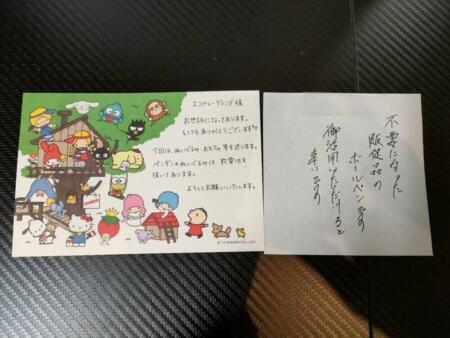 エコトレーディング様
お世話になっております。
いつもありがとうございます
今回は、ぬいぐるみ、おもちゃ等を送ります。
ペンギンのぬいぐるみは、乾電池を
抜いてあります。
よろしくお願いいたします。
不要になった
販促品の
ボールペンです
御活用いただけると
幸いです